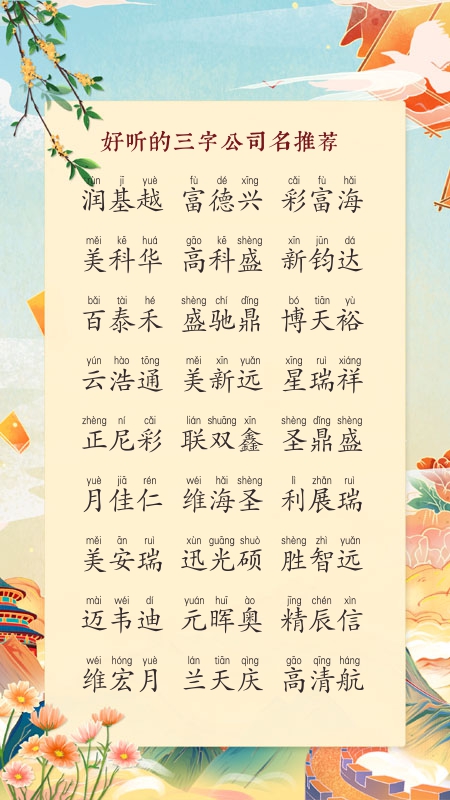 好听的三字公司名推荐
rùn jī yuè fù dé xīng cǎi fù hǎi
润基越 富德兴 彩富海
měi kē huá gāo kē shèng xīn jūn dá
美科华 高科盛 新钧达
bǎi tài hé shèng chí dǐng bó tiān yù
百泰禾 盛驰鼎 博天裕
yún hào tōng měi xīn yuǎn xīng ruì xiáng
云浩通 美新远 星瑞祥
zhèng ní cǎi lián shuāng xīn shèng dǐng shèng
正尼彩 联双鑫 圣鼎盛
yuè jiā rén wéi hǎi shèng lì zhǎn ruì
月佳仁 维海圣 利展瑞
měi ān ruì xùn guāng shuò shèng zhì yuǎn
美安瑞 迅光硕 胜智远
mài wéi dí yuán huī ào jīng chén xìn
迈韦迪 元晖奥 精辰信
wéi hóng yuè lán tiān qìng gāo qīng háng
维宏月 兰天庆 高清航